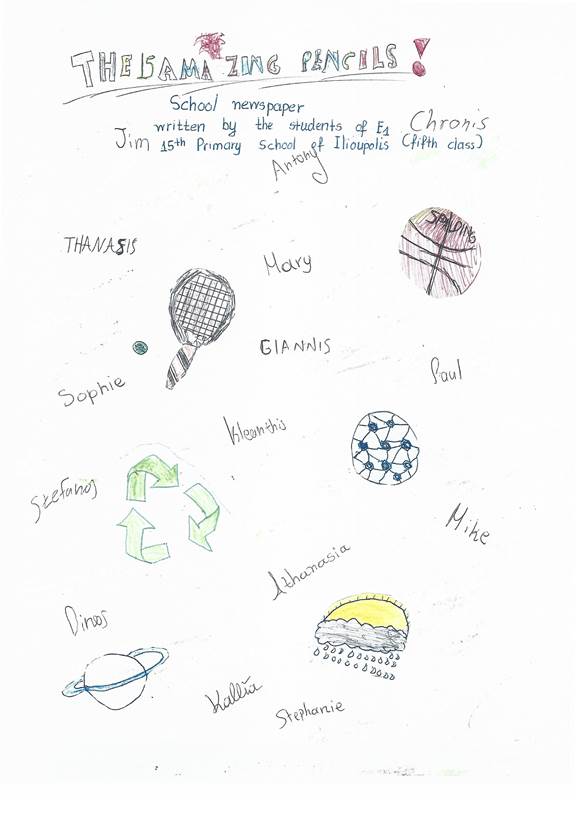 THE 15 AMAZING PENCILS!
School newspaper
written by the students of E1
Chronis
Jim
15th Primary School of Ilioupolis (fifth class)
Antony
SPALDING
THANASIS
Mary
GIANNIS
Paul
Sophie
Kleanthis
Stefanos
Mike
Athanasia
Dinos
Kallia
Stephanie